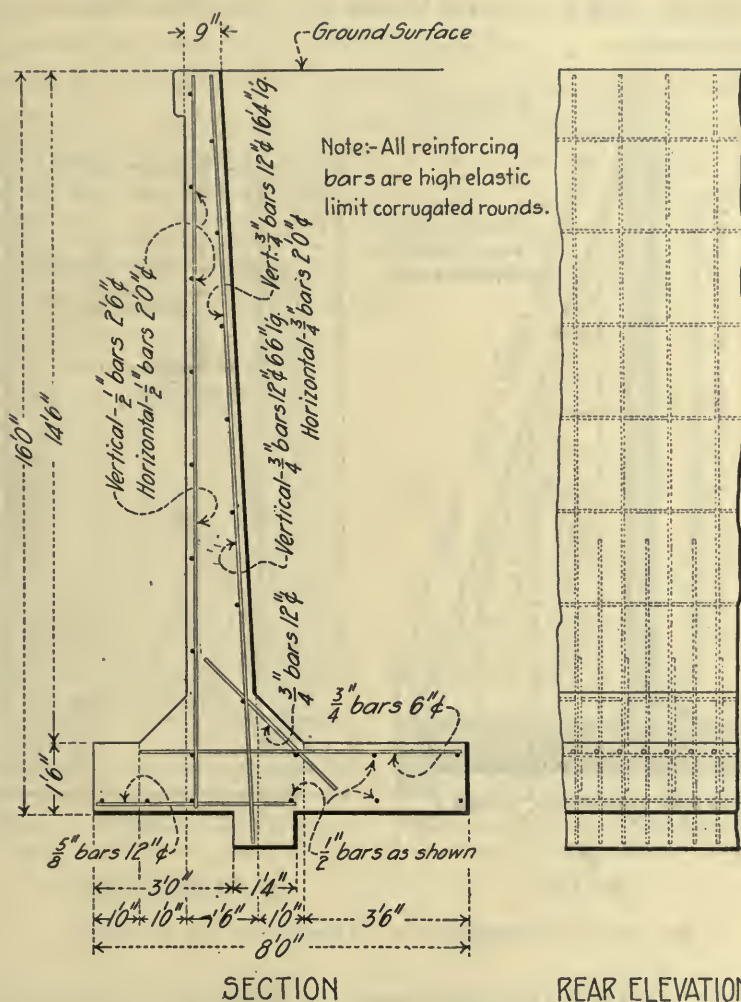 9"
Ground Surface
Note:-All reinforcing
bars are high elastic
limit corrugated rounds.
Vert.-3/4" bars 12"¢ 16'4" lg.
Horizontal-3/4" bars 2'0"¢
Vertical-1/2" bars 2'6"¢
Horizontal-1/2" bars 2'0"¢
Vertical-3/4" bars 12"¢ 6'6" lg.
16'0"
14'6"
3/4" bars 12"¢
3/4" bars 6"¢
1'6"
5/8" bars 12"¢
1/2" bars as shown
3'0"
1'4"
1'0"
1'0"
1'6"
1'0"
3'6"
8'0"
SECTION
REAR ELEVATION